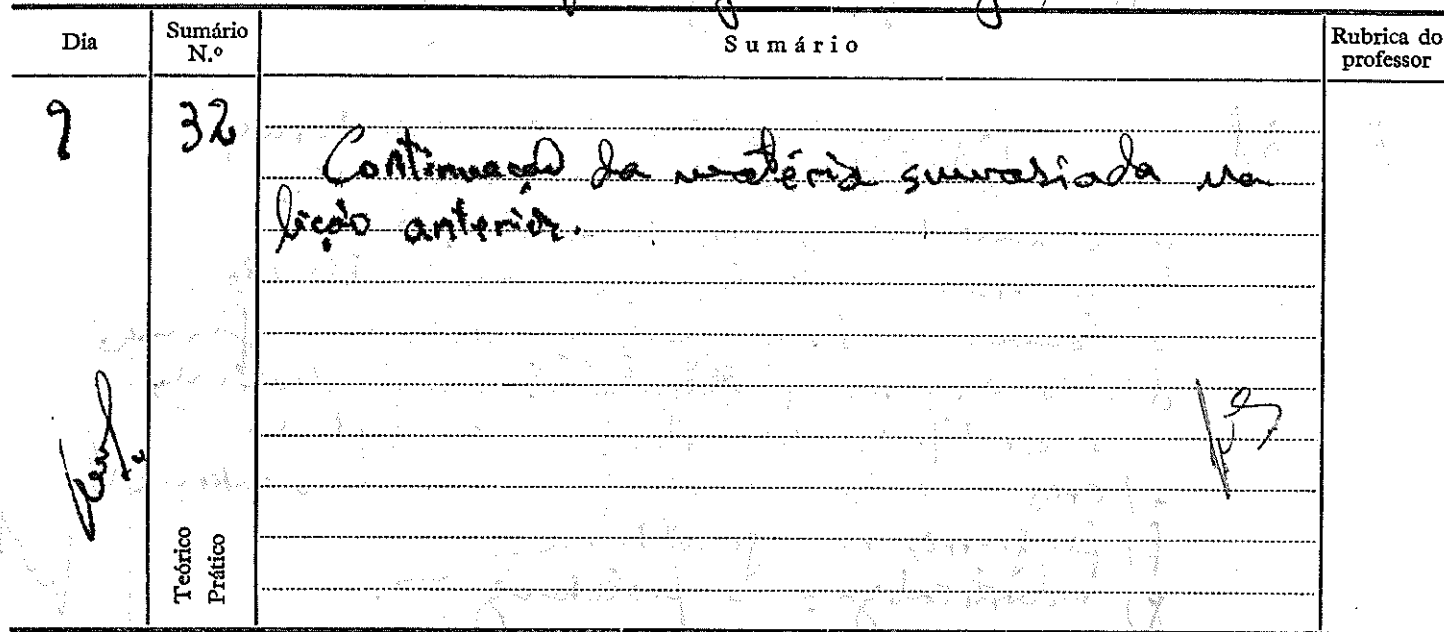 Dia
Sumário N.º
Sumário
Rubrica do professor
9
32
Continuação da matéria sumariada na
lição anterior.
Teórico
Prático